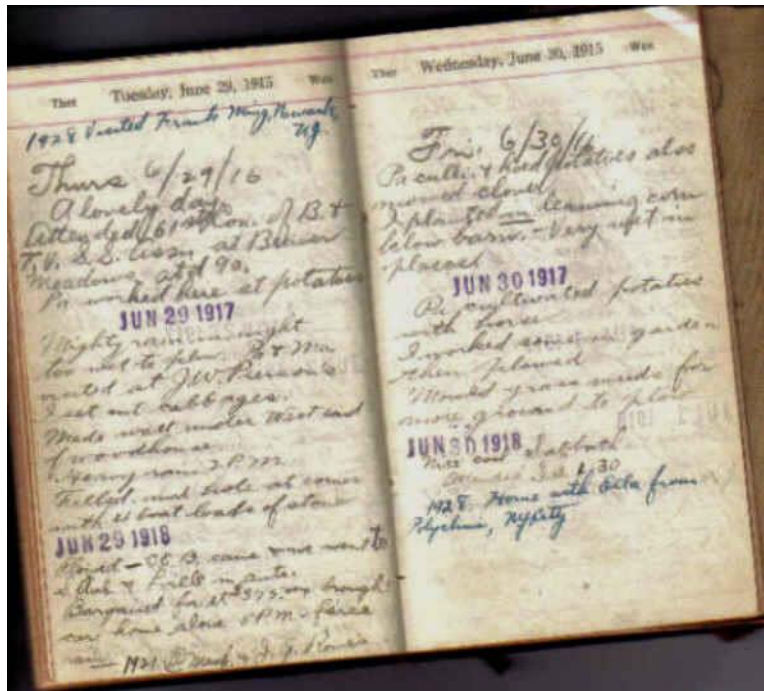 Ther Tuesday, June 29, 1915 Wea
1928 Visited Frank Ming, Newark,
NJ.
Thurs 6/29/16
A lovely day.
Attended 61st Con. of B. &
T.V. S.S. Assn. at Beaver
Meadows atd 90.
Pa worked here at potatoes
JUN 29 1917
Mighty rain in night
too wet to plow. Pa & Ma
visited at J.W. Pierson's
I set out cabbages.
Made wall under West end
of woodhouse
Heavy rain 2 P.M.
Filled mud hole at corner
with 4 boat loads of stone
JUN 29 1918
- O.E.B. came & we went to
& in auto.
Bargained for it $375.00 brought
car home alone 5 P.M. - fierce
rain - 1921 @ & J. G.
Ther Wednesday, June 30, 1915 Wea
Fri. 6/30/16
Pa culti. & hoed potatoes also
mowed clover
I planted in leaming corn
below barn. - Very wet in
places
JUN 30 1917
Pa cultivated potatoes
with horse
I worked some in garden
then plowed
Mowed grass weeds for
more ground to plow
JUN 30 1918
Nice cool Sabbath
1.30
1928 Home with from
Polyclinic, NY City